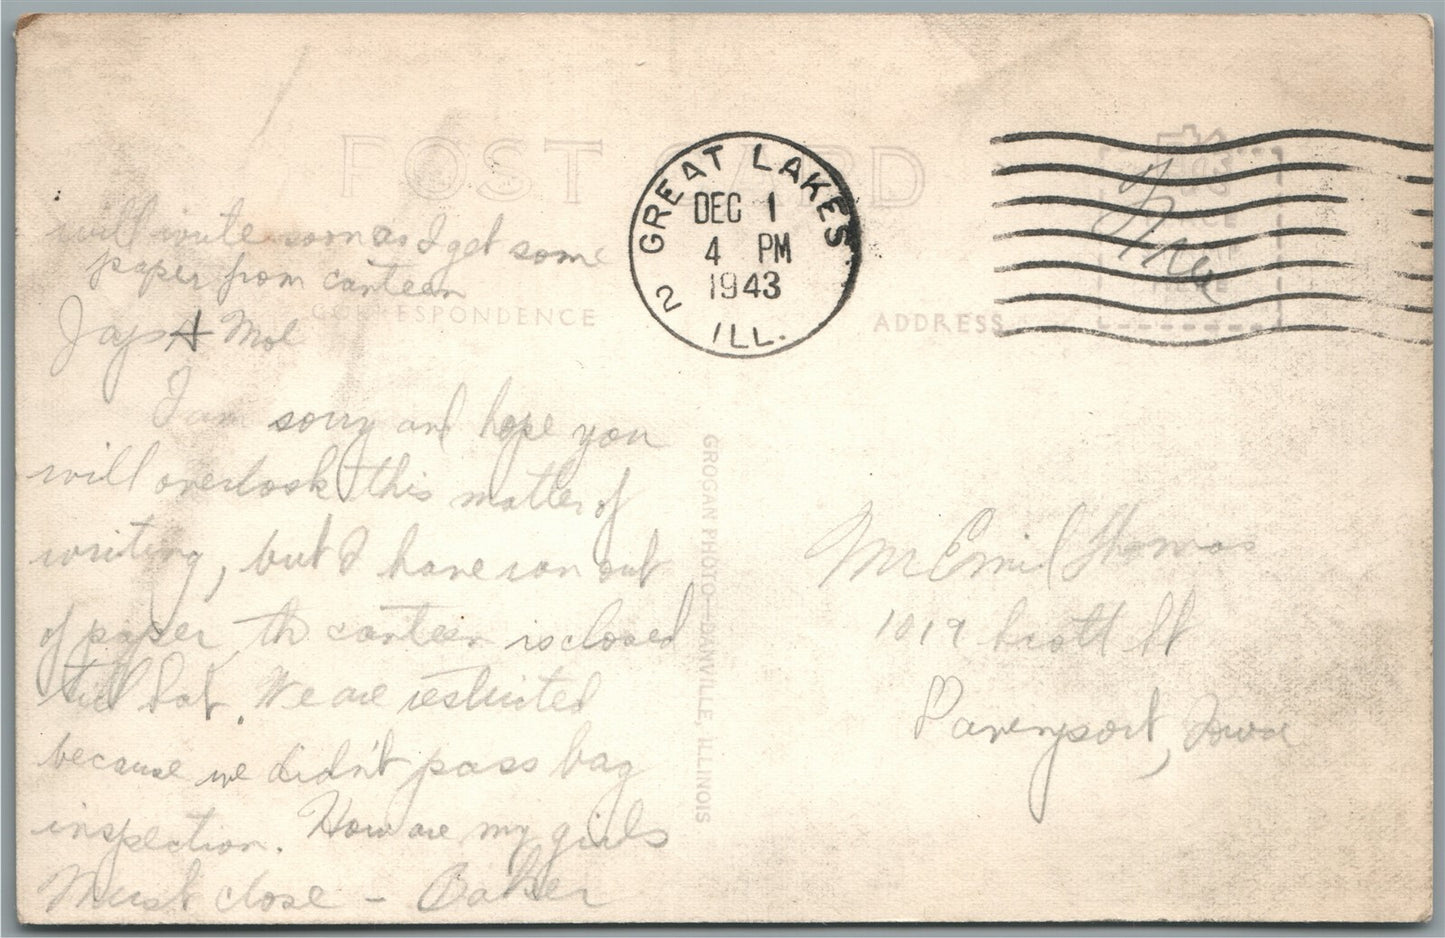 POST CARD
will write soon as I get some
paper from canteen
CORRESPONDENCE
Japs & Mol
I am sorry and hope you
will overlook this matter of
writing, but I have ran out
of paper, th canteen is closed
till Sat. We are restricted
because we didn't pass bag
inspection. How are my girls
Must close - Baker
GROGAN PHOTO—DANVILLE, ILLINOIS
2 GREAT LAKES ILL.
DEC 1
4 PM
1943
ADDRESS
PLACE
Free
HERE
Mr Emil Thomas
1019 Scott St
Davenport, Iowa